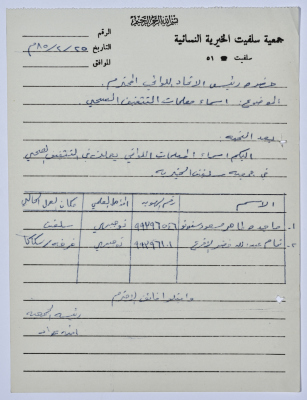 بسم الله الرحمن الرحيم
جمعية سلفيت الخيرية النسائية
سلفيت ٥١
الرقم
التاريخ ٢٥/٢/٨٥م
الموافق
حضرة رئيس الاتحاد اللوائي المحترم
الموضوع: اسماء معلمات التثقيف الصحي
بعد التحية
اليكم اسماء المعلمات اللواتي يعملن في التثقيف الصحي
في جمعية سلفيت الخيرية
الاسم رقم الهوية المؤهل العلمي مكان العمل الحالي
١- ماجدة توجيهي سلفيت
٢- ختام عبد الله توجيهي
واقبلوا فائق الاحترام
رئيسة الجمعية